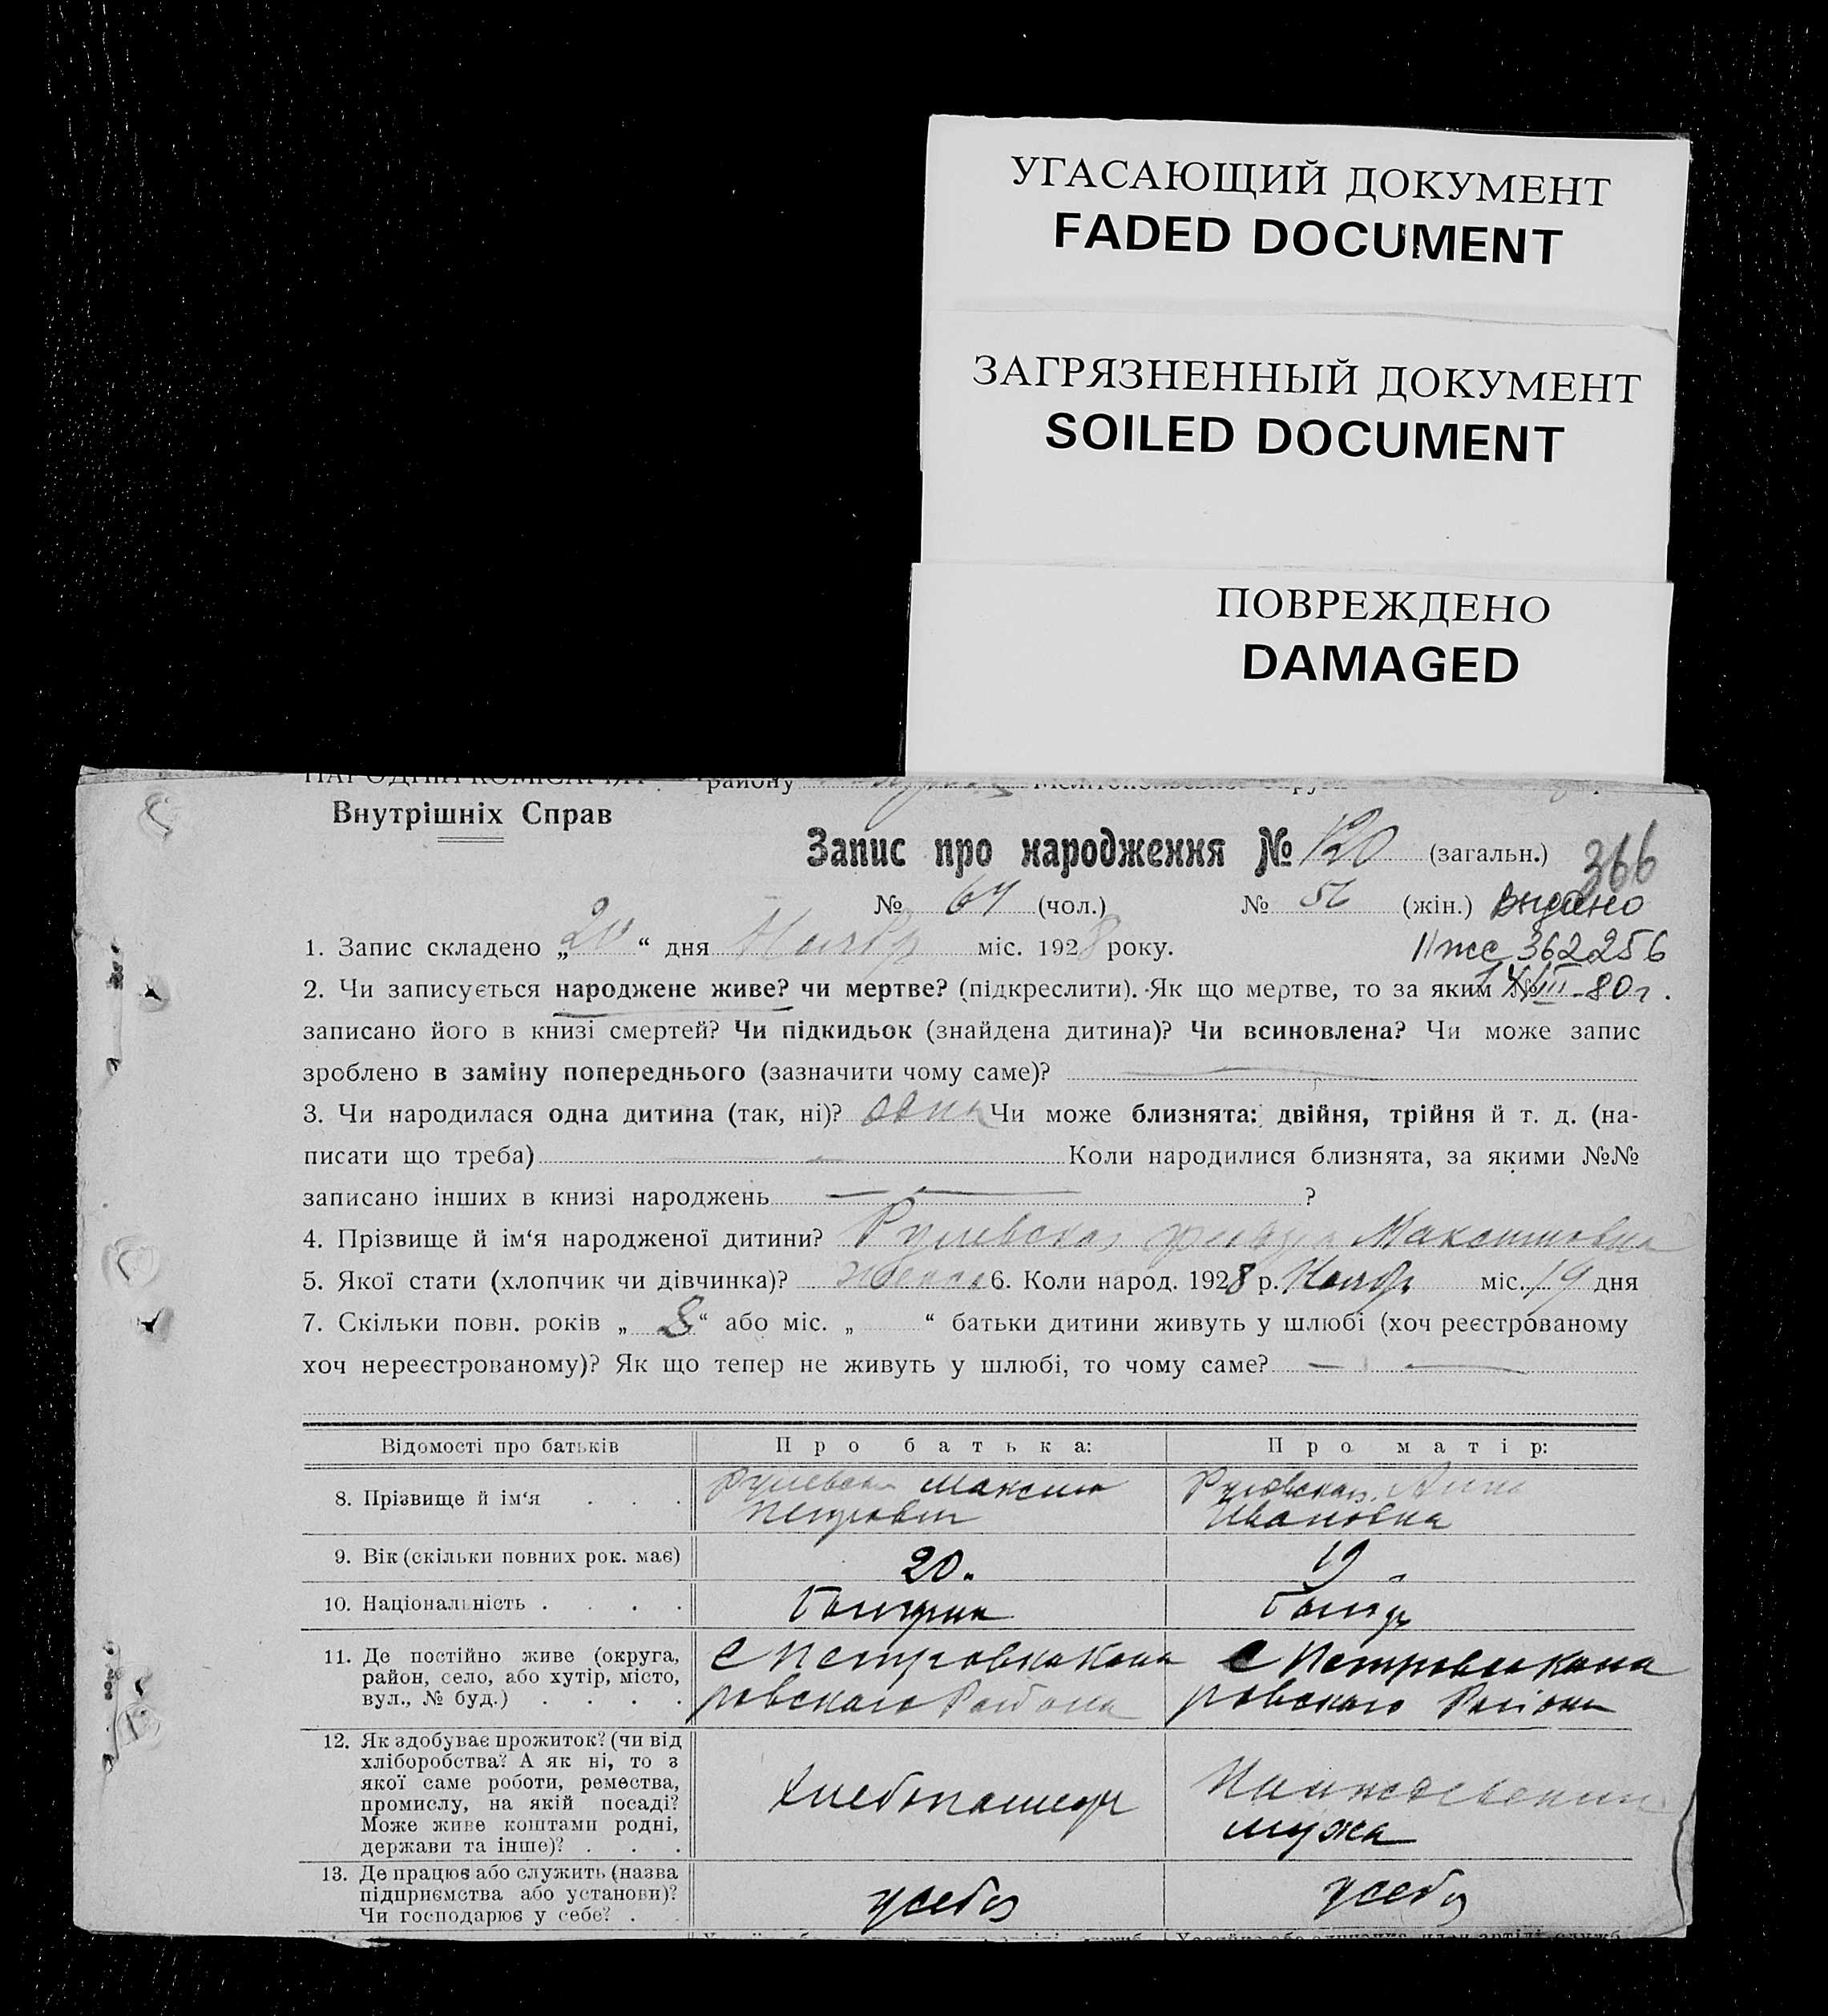 УГАСАЮЩИЙ ДОКУМЕНТ
FADED DOCUMENT
ЗАГРЯЗНЕННЫЙ ДОКУМЕНТ
SOILED DOCUMENT
ПОВРЕЖДЕНО
DAMAGED
району
Внутрішніх Справ
Запис про народження № 120 (загальн.) 366
№ 64 (чол.) № 56 (жін.) Выдано
1. Запис складено „20“ дня Ноябр міс. 1928 року. 362256
2. Чи записується народжене живе? чи мертве? (підкреслити). Як що мертве, то за яким № 80 г.
записано його в книзі смертей? Чи підкидьок (знайдена дитина)? Чи всиновлена? Чи може запис
зроблено в заміну попереднього (зазначити чому саме)?
3. Чи народилася одна дитина (так, ні)? Чи може близнята: двійня, трійня й т. д. (на-
писати що треба) Коли народилися близнята, за якими №№
записано інших в книзі народжень ?
4. Прізвище й ім‘я народженої дитини? Максимовна
5. Якої стати (хлопчик чи дівчинка)? 6. Коли народ. 1928 р. Ноябр міс. 19 дня
7. Скільки повн. років „8“ або міс. „ “ батьки дитини живуть у шлюбі (хоч реєстрованому
хоч нереєстрованому)? Як що тепер не живуть у шлюбі, то чому саме?
Відомості про батьків Про батька: Про матір:
8. Прізвище й ім‘я . . . Максим Анна
Петрович Ивановна
9. Вік (скільки повних рок. має) 20. 19
10. Національність . . . . Болгарин Болгар
11. Де постійно живе (округа, С Петровка Кона С Петровка Кона
район, село, або хутір, місто,
вул., № буд.) . . . . ровскаго Района ровскаго Района
12. Як здобуває прожиток? (чи від
хліборобства? А як ні, то з
якої саме роботи, ремества,
промислу, на якій посаді? Хлебопашец Иждевении
Може живе коштами родні, мужа
держави та інше)? . . .
13. Де працює або служить (назва
підприємства або установи)? у себя у себя
Чи господарює у себе? .